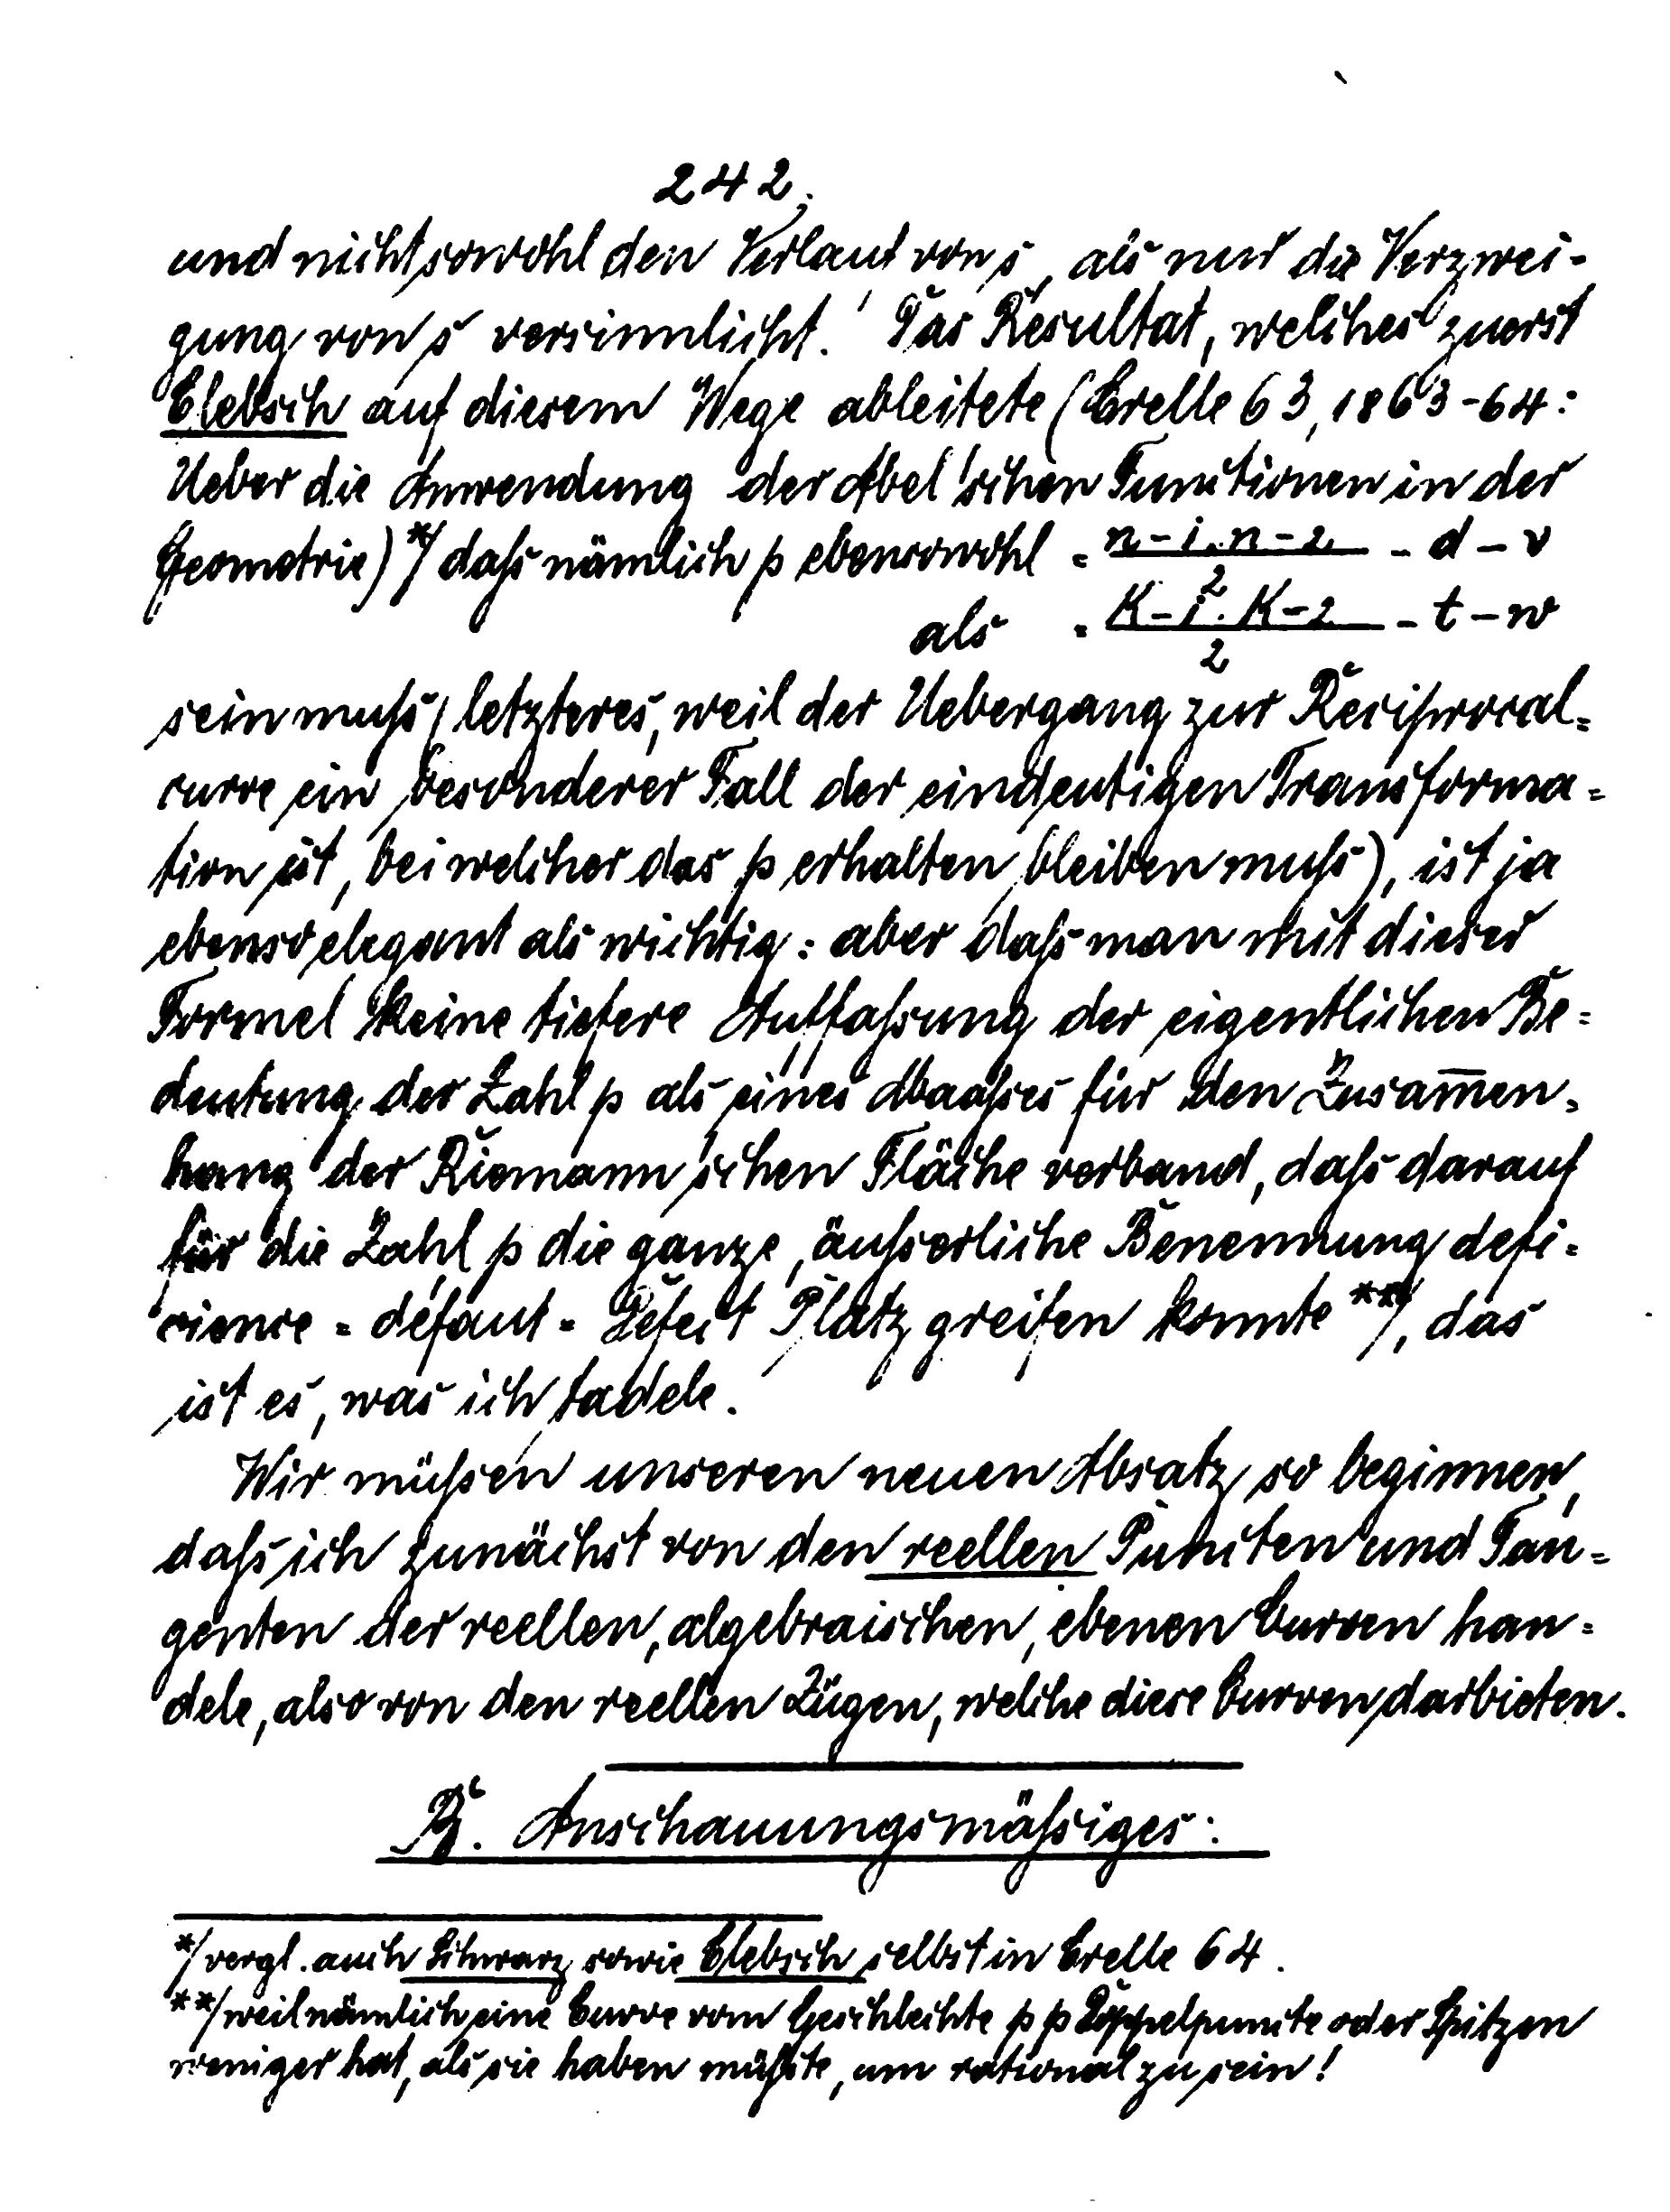 242.
und nicht sowohl den Verlauf von s, als nur die Verzwei-
gung von s versinnlicht. Das Resultat, welches zuerst
Clebsch auf diesem Wege ableitete (Crelle 63, 1863-64:
Ueber die Anwendung der Abel'schen Functionen in der
Geometrie)*) dass nämlich p ebensowohl = (n-1.n-2)/2 - d - v
als = (K-1.K-2)/2 - t - w
sein muss (letzteres, weil der Uebergang zur Reciprocal-
curve ein besonderer Fall der eindeutigen Transforma-
tion ist, bei welcher das p erhalten bleiben muss), ist ja
ebenso elegant als wichtig: aber dass man mit dieser
Formel keine tiefere Auffassung der eigentlichen Be-
deutung der Zahl p als eines Maasses für den Zusam̅en-
hang der Riemann'schen Fläche verband, dass darauf
für die Zahl p die ganze, äusserliche Benennung defi-
cience - défaut - Defect Platz greifen konnte**), das
ist es, was ich tadele.
Wir müssen unseren neuen Absatz so beginnen,
dass ich zunächst von den reellen Puncten und Tan-
genten der reellen, algebraischen, ebenen Curven han-
dele, also von den reellen Zügen, welche diese Curven darbieten.
B. Anschauungsmässiges:
*) vergl. auch Schwarz sowie Clebsch selbst in Crelle 64.
**) weil nämlich eine Curve vom Geschlechte p p Doppelpuncte oder Spitzen
weniger hat, als sie haben müsste, um rational zu sein!